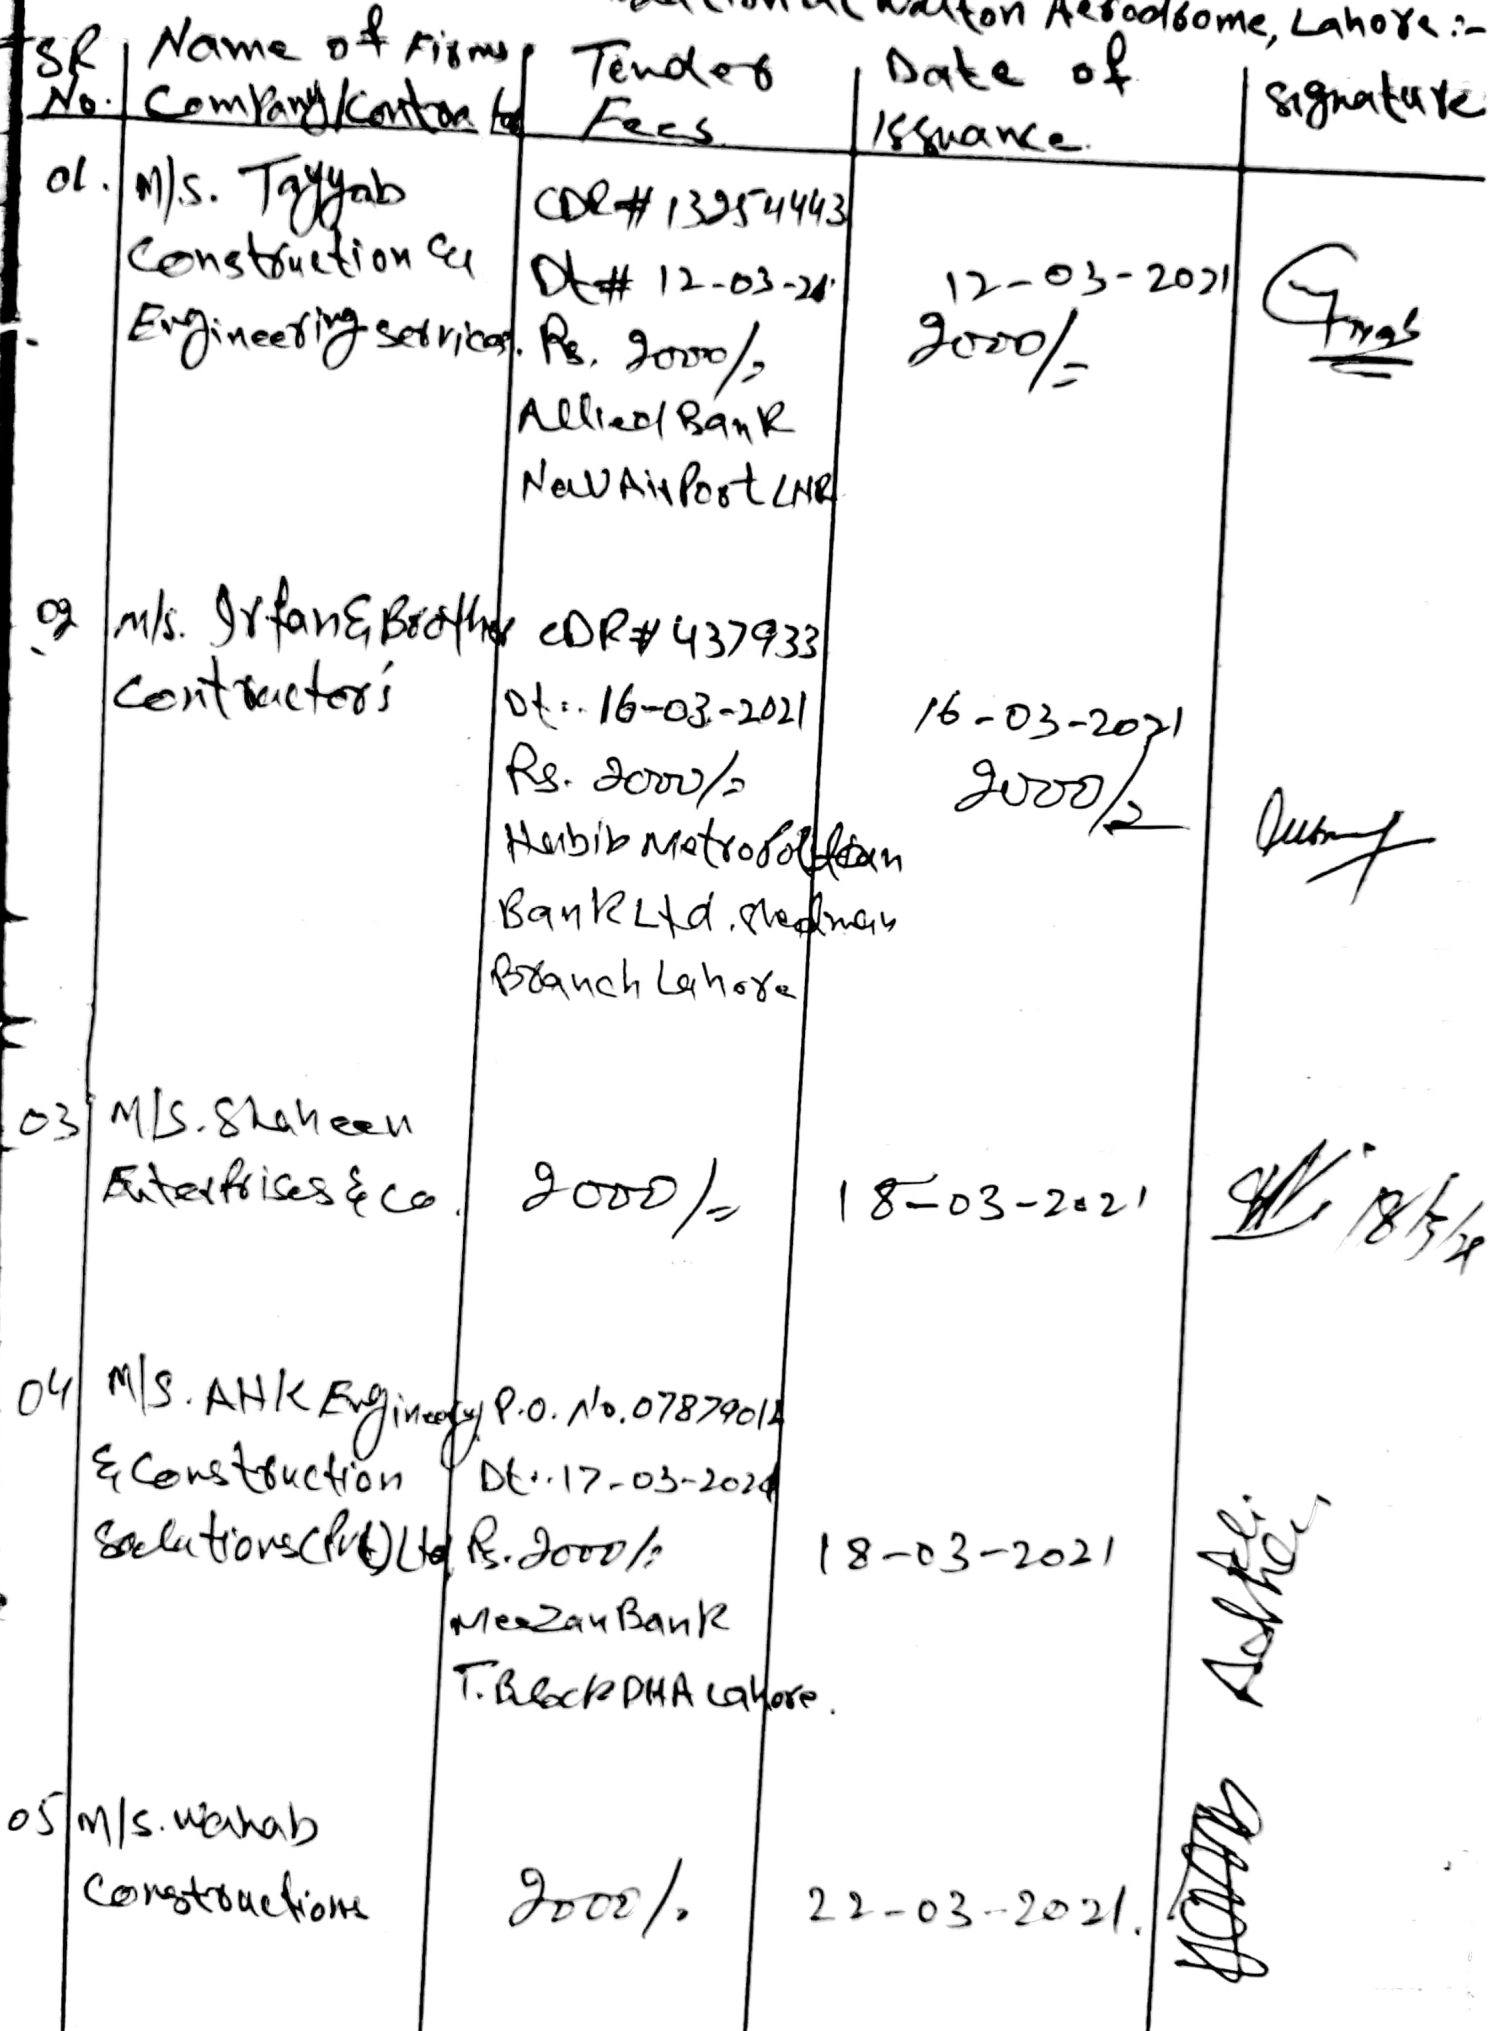 Walton Aerodrome, Lahore :-
SR No. | Name of Firms Company/Contractor | Tender Fees | Date of Issuance. | Signature
01. M/S. Tayyab
Construction &
Engineering services.
CDR# 13254443
Dt# 12-03-21
Rs. 2000/=
Allied Bank
New AirPort LHR
12-03-2021
2000/=
02 M/s. Irfan & Brother
Contractor's
CDR# 437933
Dt:. 16-03-2021
Rs. 2000/=
Habib Metropolitan
Bank Ltd. Shadman
Branch Lahore
16-03-2021
2000/=
03 M/S. Shaheen
Enterprises & Co.
2000/=
18-03-2021
18/3/21
04 M/S. AHK Engineering
& Construction
Solutions (Pvt) Ltd
P.O. No. 07879012
Dt:. 17-03-2021
Rs. 2000/=
Meezan Bank
T. Block DHA Lahore.
18-03-2021
05 M/S. Wahab
Constructions
2000/=
22-03-2021.